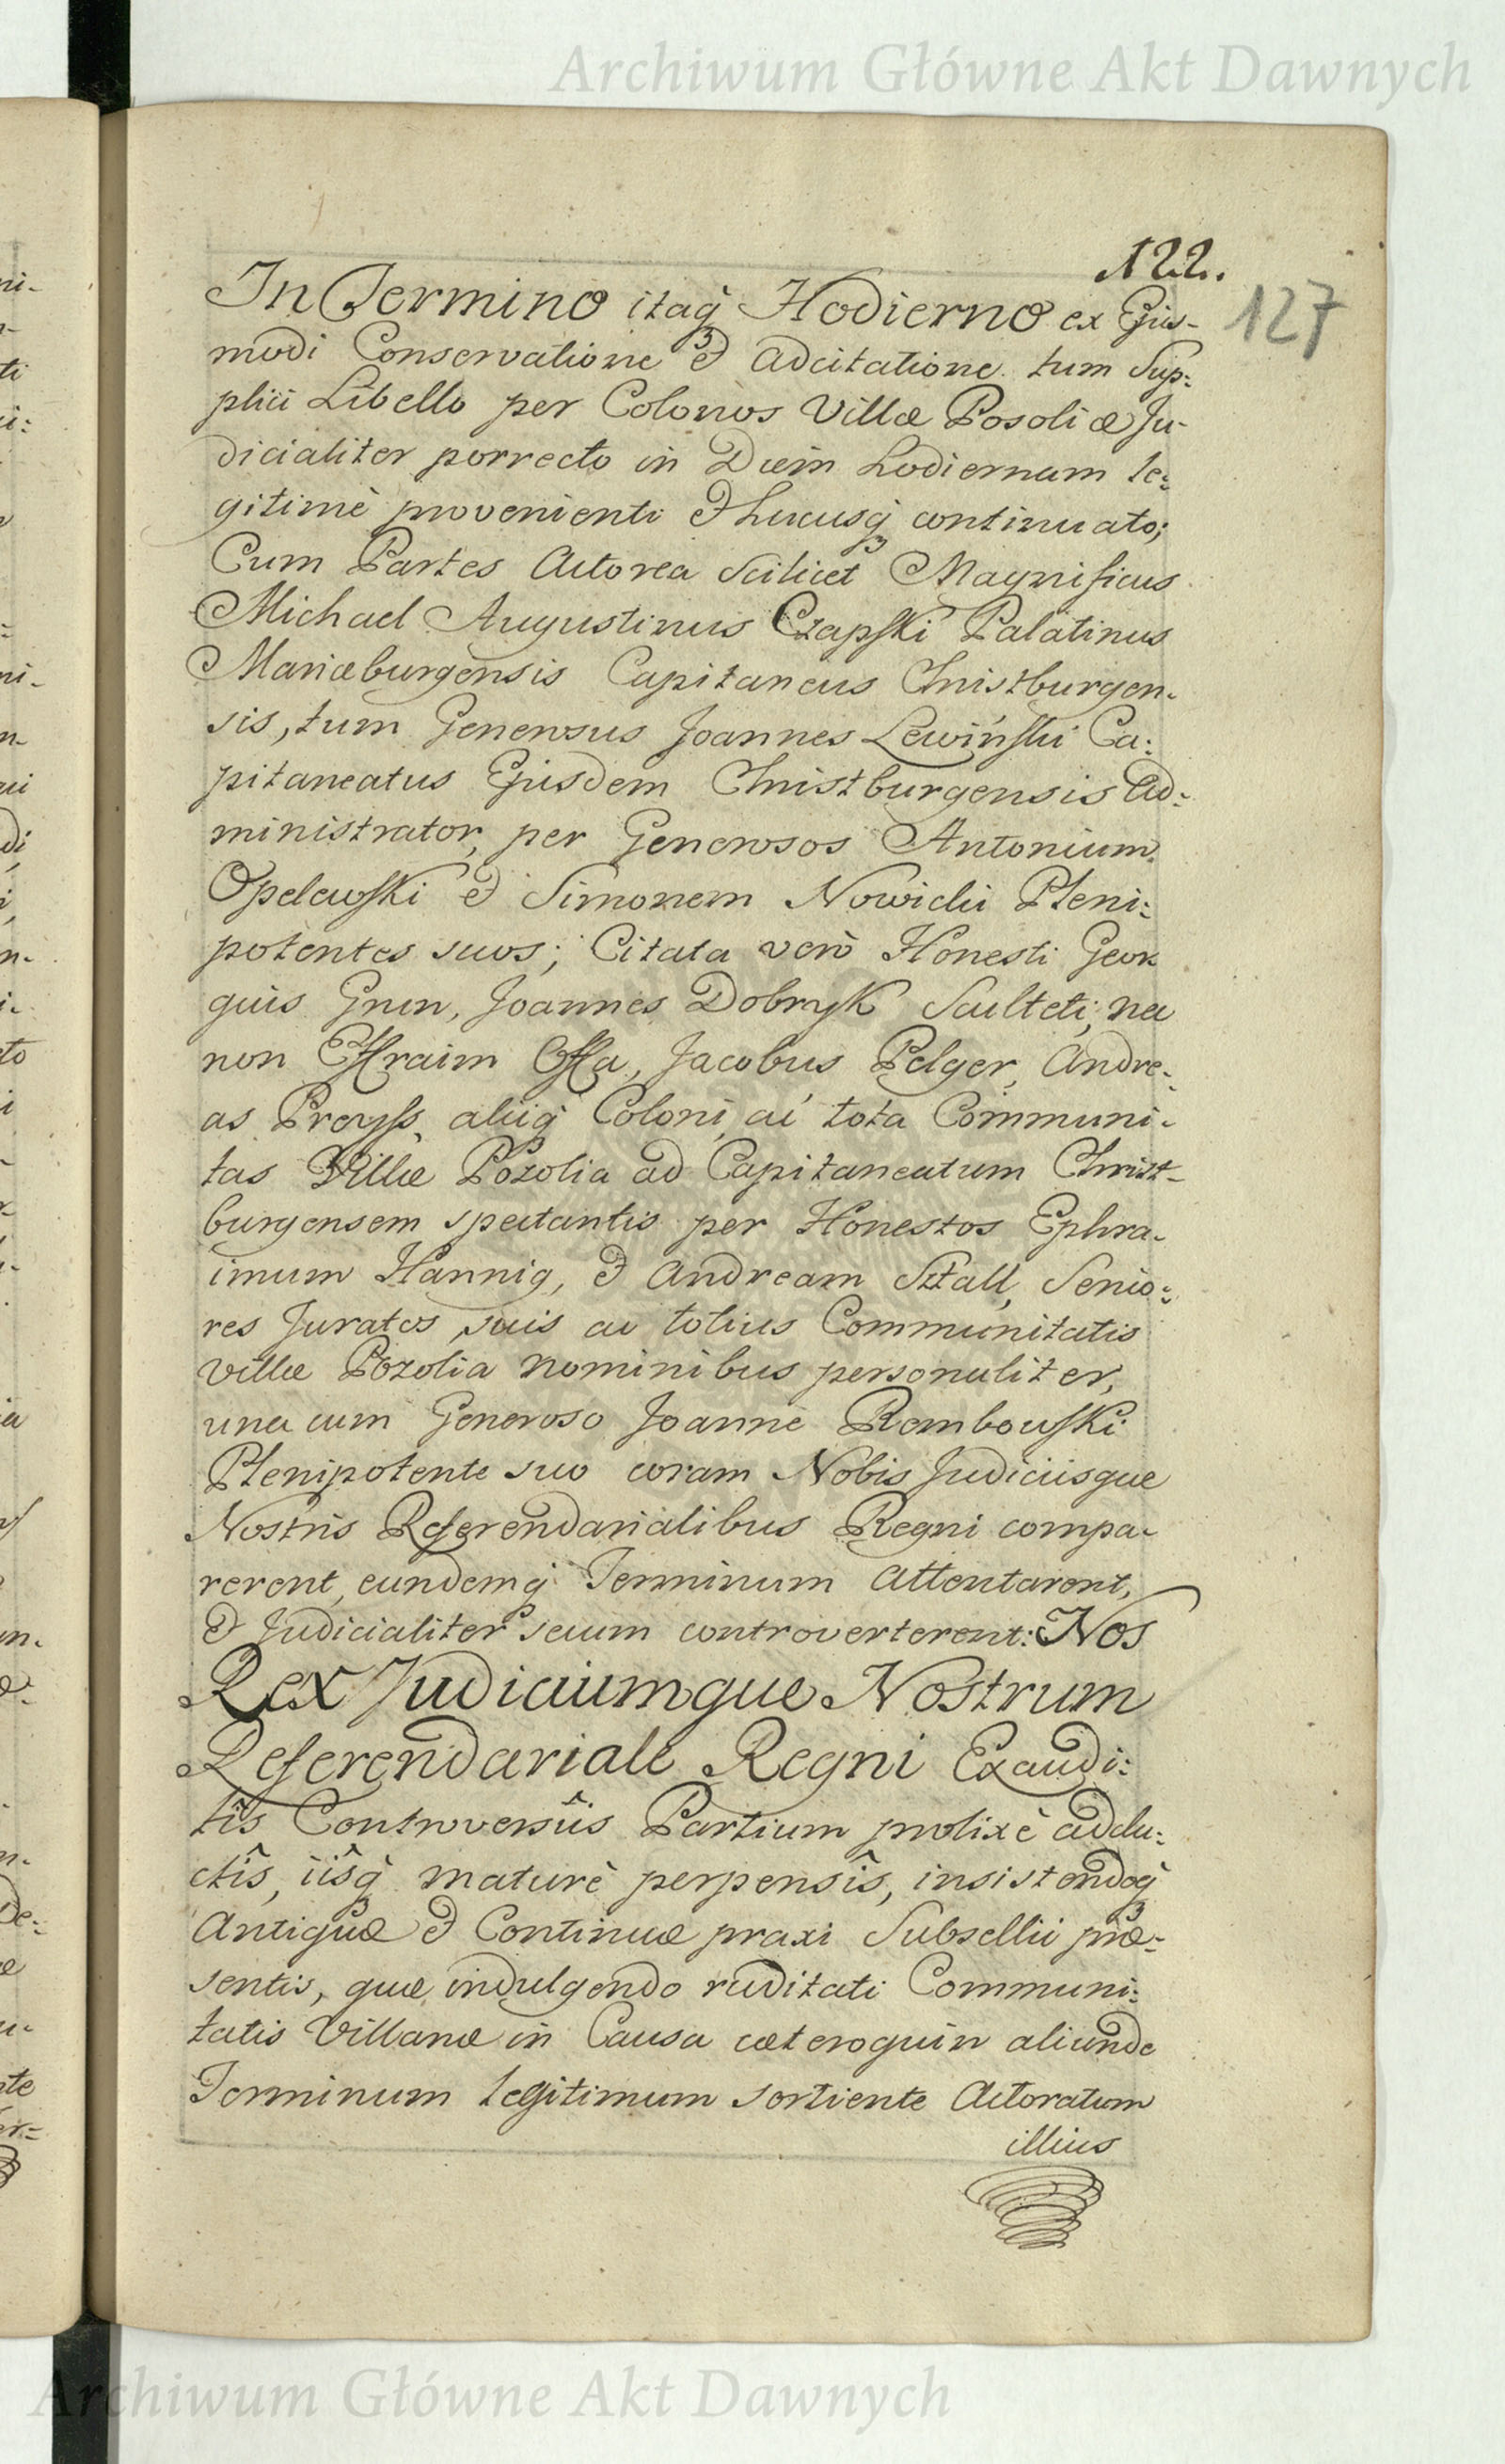 Archiwum Główne Akt Dawnych
122.
127
In Termino itaq Hodierno ex Ejus-
modi Conservatione & Adcitatione tum Sup:
plici Libello per Colonos Villæ Posoliæ Ju-
dicialiter porrecto in Diem hodiernam le:
gitimè provenienti & hucusq continuato;
Cum Partes Actorea scilicet Magnificus
Michael Augustinus Czapski Palatinus
Mariæburgensis Capitaneus Christburgen-
sis, tum Generosus Joannes Lewiński Ca:
pitaneatus Ejusdem Christburgensis Ad:
ministrator, per Generosos Antonium
Opelewski & Simonem Nowicki Pleni:
potentes suos; Citata verò Honesti Geor
gius Grun, Joannes Dobryk Sculteti, nec
non Effraim Offa, Jacobus Pelger, Andre-
as Preyss, aliiq Coloni, ac tota Communi-
tas Villæ Pozolia ad Capitaneatum Christ-
burgensem spectantis per Honestos Ephra-
imum Hannig, & Andream Sztall, Senio:
res Juratos suis ac totius Communitatis
Villæ Pozolia nominibus personaliter,
una cum Generoso Joanne Rembowski
Plenipotente suo coram Nobis Judiciisque
Nostris Referendarialibus Regni compa-
rerent, eundemq Terminum attentarent,
& Judicialiter secum controverterent: Nos
Rex Judiciumque Nostrum
Referendariale Regni Exaudi:
tîs Controversiîs Partium prolixè addu:
ctîs, iîsq maturè perpensîs, insistendoq
Antiquæ & Continuæ praxi Subsellii præ:
sentis, quæ indulgendo ruditati Communi:
tatis Villanæ in Causa cæteroquin aliunde
Terminum legitimum sortiente Actoratum
illius
Archiwum Główne Akt Dawnych